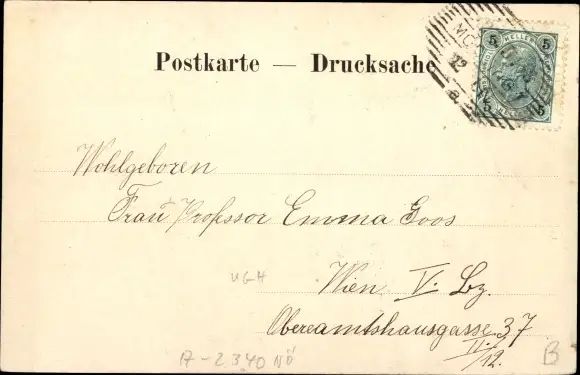 Postkarte — Drucksache
5 HELLER 5
5 5
Wohlgeboren
Frau Professor Emma Goos
UGH
Wien V. Bz.
Obereamtshausgasse 37
II./12.
A-2340 NÖ
B